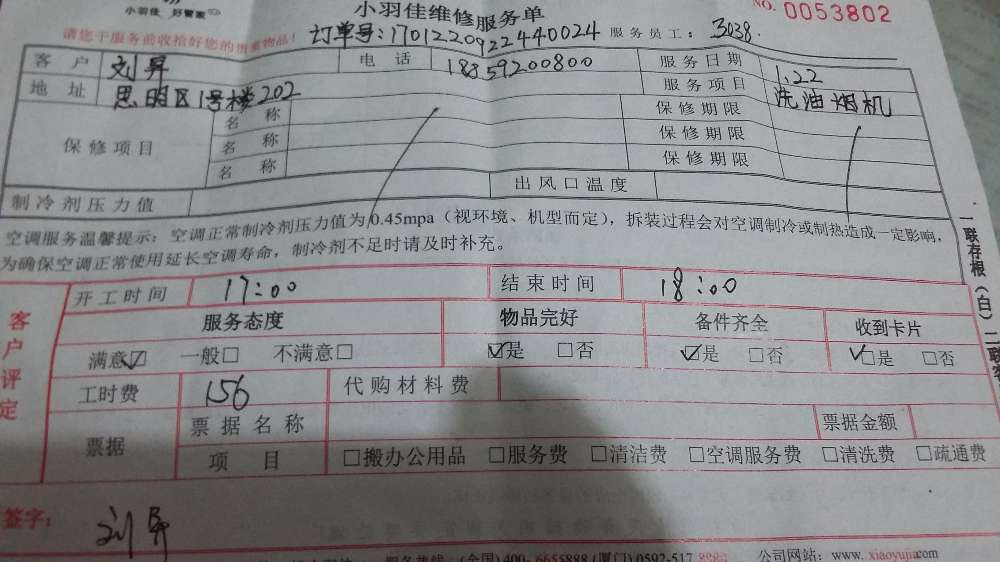 小羽佳 好管家
小羽佳维修服务单
NO. 0053802
请您于服务前收拾好您的贵重物品！ 订单号：1701220922440024 服务员工：3038.
客户 刘昇 电话 18359200800 服务日期 1.22
地址 思明区1号楼202 服务项目 洗油烟机
保修项目 名称 保修期限
名称 保修期限
名称 保修期限
制冷剂压力值 出风口温度
空调服务温馨提示：空调正常制冷剂压力值为0.45mpa（视环境、机型而定），拆装过程会对空调制冷或制热造成一定影响，
为确保空调正常使用延长空调寿命，制冷剂不足时请及时补充。
一联存根（白）二联客
客户评定
开工时间 17:00 结束时间 18:00
服务态度 物品完好 备件齐全 收到卡片
满意☑ 一般□ 不满意□ ☑是 □否 ☑是 □否 ☑是 □否
工时费 156 代购材料费
票据 票据名称 票据金额
项目 □搬办公用品 □服务费 □清洁费 □空调服务费 □清洗费 □疏通费
签字： 刘昇
服务热线：(全国)400-6655888 (厦门)0592-517 公司网站：www.xiaoyujia.com